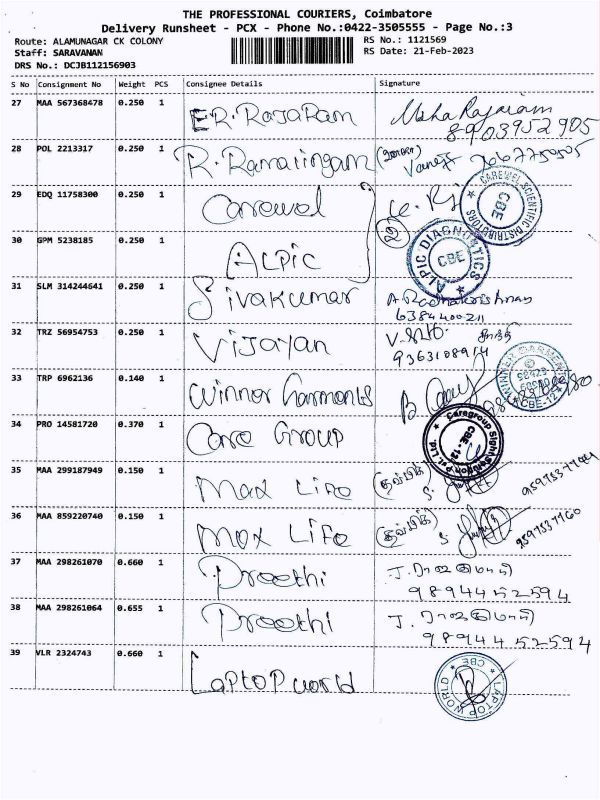 THE PROFESSIONAL COURIERS, Coimbatore
Delivery Runsheet - PCX - Phone No.:0422-3505555 - Page No.:3
Route: ALAMUNAGAR CK COLONY RS No.: 1121569
Staff: SARAVANAN RS Date: 21-Feb-2023
DRS No.: DCJB112156903
S No Consignment No Weight PCS Consignee Details Signature
27 MAA 567368478 0.250 1 ER.RajaRam Usha Rajaram
8903952905
28 POL 2213317 0.250 1 R.Ramalingam
29 EDQ 11758300 0.250 1 Carewel CAREWEL SCIENTIFIC DISTRIBUTORS CBE
30 GPM 5238185 0.250 1 ALPIC 2 ALPIC DIAGNOSTICS CBE
31 SLM 314244641 0.250 1 Sivakumar A.Radhakrishnan
6384400211
32 TRZ 56954753 0.250 1 Vijayan
33 TRP 6962136 0.140 1 Winner Garments CBE-12
34 PRO 14581720 0.370 1 Care Group CBE-12
35 MAA 299187949 0.150 1 Max Life
36 MAA 859220740 0.150 1 Max Life
37 MAA 298261070 0.660 1 Preethi
9894452594
38 MAA 298261064 0.655 1 Preethi
9894452594
39 VLR 2324743 0.660 1 Laptop world LAPTOP WORLD CBE